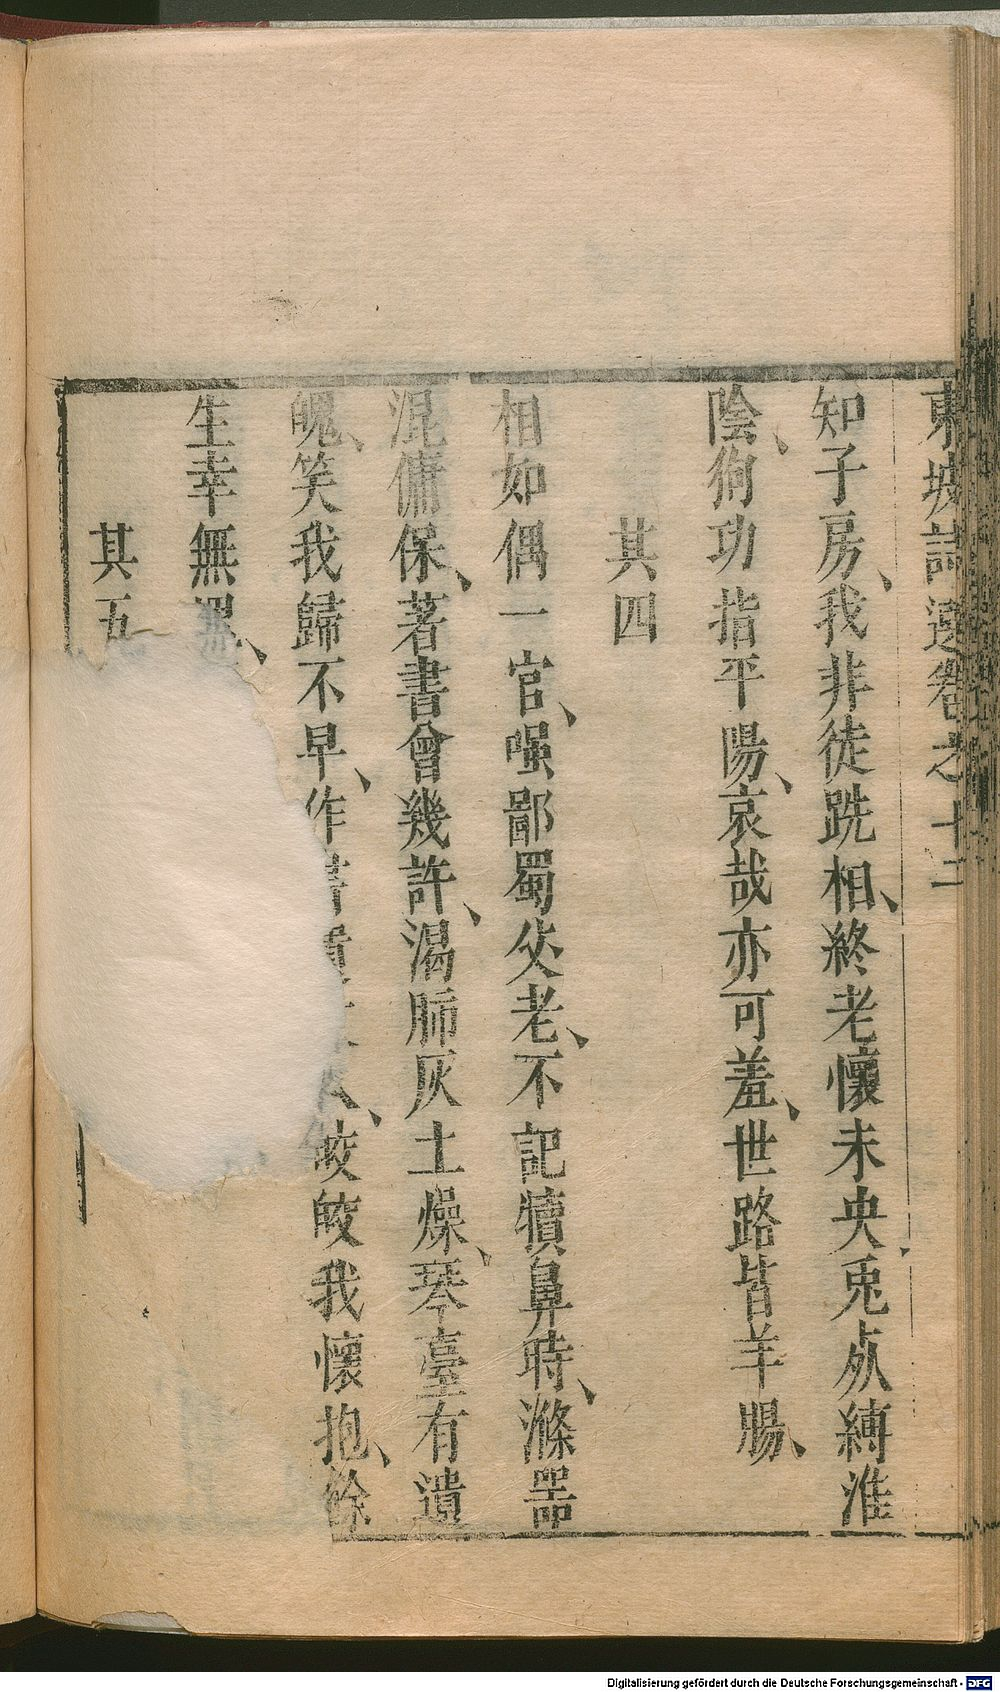 東坡詩選卷之十二
知子房、我非徒跣相、終老懷未央、兎死縛淮
陰、狗功指平陽、哀哉亦可羞、世路皆羊腸、
其四
相如偶一官、嗤鄙蜀父老、不記犢鼻時、滌器
混傭保、著書曾幾許、渴肺灰土燥、琴臺有遺
魄、笑我歸不早、作書 皎皎我懷抱、餘
生幸無
其五
Digitalisierung gefördert durch die Deutsche Forschungsgemeinschaft - DFG